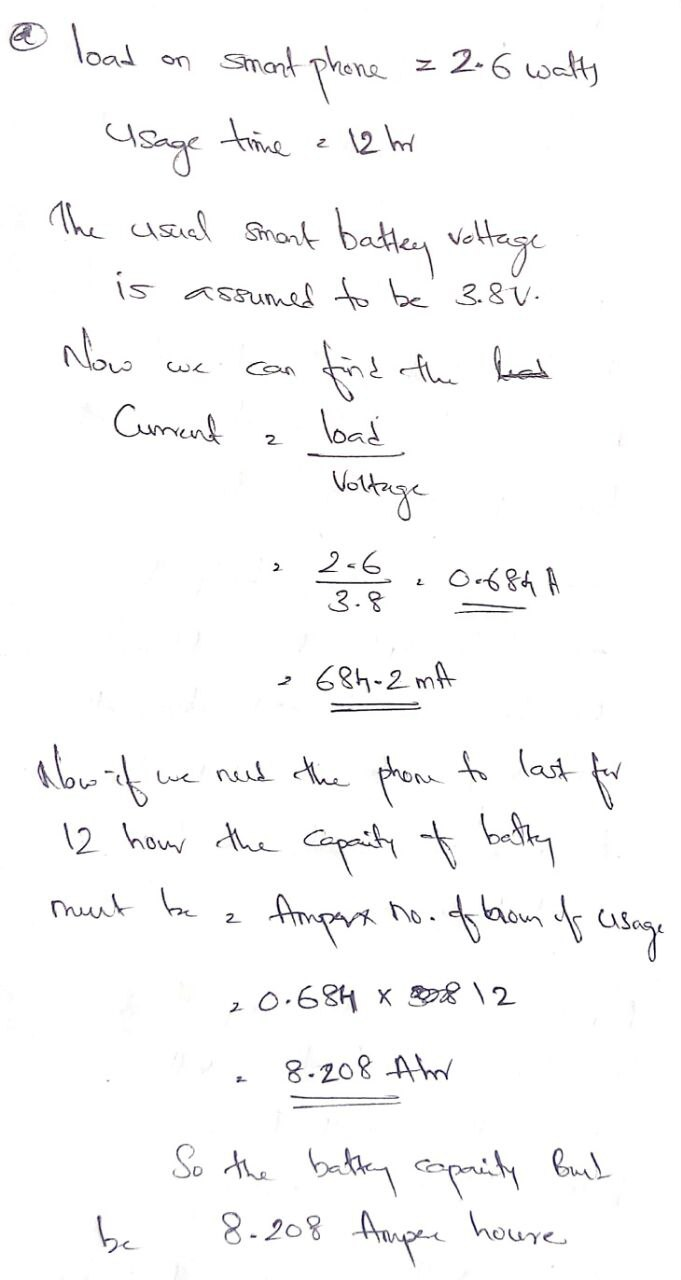 (a) load on smart phone = 2.6 watts
Usage time = 12 hr
The usual smart battey voltage
is assumed to be 3.8V.
Now we can find the
Current = load
Voltage
= 2.6
3.8 = 0.684 A
= 684.2 mA
Now if we need the phone to last for
12 hour the capaity of battey
must be = Amper x no. of hours of usage
= 0.684 x 12
= 8.208 Ahr
So the battey capaity
be 8.208 Amper houre